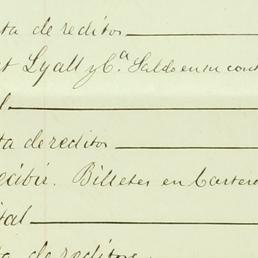 ta de reditos
t Lyall y Cª. Saldo en su cont
l
ta de reditos
ecibir. Billetes en Cartera
ital
ta de reditos.